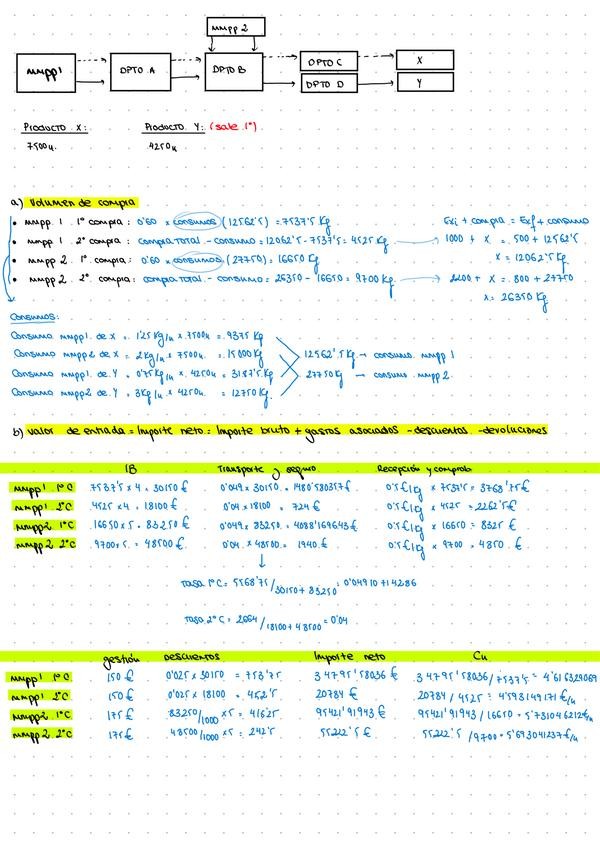 mmpp 2
mmpp1 DPTO A DPTO B DPTO C X
DPTO D Y
Producto X: Producto Y: (sale 1º)
7500u. 4250u
a) Volumen de compra
• mmpp. 1. 1º compra: 0'60 x consumos (12562'5) = 7537'5 Kg Exi + compra = Exf + consumo
• mmpp 1. 2º compra: compra total - consumo = 12062'5 - 7537'5 = 4525 Kg → 1000 + X = 500 + 12562'5
• mmpp 2. 1º compra: 0'60 x consumos (27750) = 16650 Kg X = 12062'5 Kg
• mmpp 2. 2º compra: compra total - consumo = 26350 - 16650 = 9700 Kg → 2200 + X = 800 + 27750
X = 26350 Kg
Consumos:
Consumo mmpp1. de X = 1'25 Kg/u x 7500u = 9375 Kg
Consumo mmpp2 de X = 2 Kg/u x 7500u. = 15000 Kg 12562'5 Kg → consumo mmpp 1
Consumo mmpp1. de Y = 0'75 Kg/u x 4250u = 3187'5 Kg 27750 Kg → consumo mmpp 2
Consumo mmpp2 de Y = 3 Kg/u x 4250u. = 12750 Kg
b) Valor de entrada = Importe neto = Importe bruto + gastos asociados - descuentos - devoluciones
IB Transporte y seguro Recepción y comprob
mmpp1 1ºC 7537'5 x 4 = 30150 € 0'049 x 30150 = 1480'580357 € 0'5 €/kg x 7537'5 = 3768'75 €
mmpp1 2ºC 4525 x 4 = 18100 € 0'04 x 18100 = 724 € 0'5 €/kg x 4525 = 2262'5 €
mmpp2 1ºC 16650 x 5 = 83250 € 0'049 x 83250 = 4088'169643 € 0'5 €/kg x 16650 = 8325 €
mmpp2 2ºC 9700 x 5 = 48500 € 0'04 x 48500 = 1940 € 0'5 €/kg x 9700 = 4850 €
↓
Tasa 1ºC = 5568'75 / 30150 + 83250 = 0'0491071428 6
Tasa 2ºC = 2664 / 18100 + 48500 = 0'04
gestión Descuentos Importe neto Cu
mmpp1 1ºC 150 € 0'025 x 30150 = 753'75 34795'58036 € 34795'58036 / 7537'5 = 4'616329069
mmpp1 2ºC 150 € 0'025 x 18100 = 452'5 20784 € 20784 / 4525 = 4'593149171 €/u
mmpp2 1ºC 175 € 83250/1000 x 5 = 416'25 95421'91943 € 95421'91943 / 16650 = 5'731046212 €/u
mmpp2 2ºC 175 € 48500/1000 x 5 = 242'5 55222'5 € 55222'5 / 9700 = 5'693041237 €/u